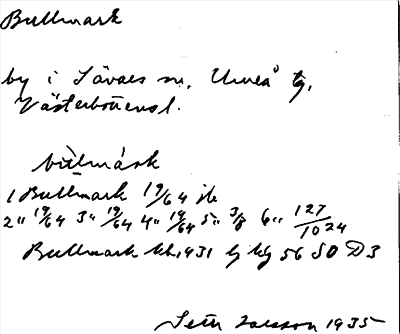 Bullmark
by i Sävars sn, Umeå tg,
Västerbottensl.
bùlmárk
1 Bullmark 19/64 jb
2" 19/64 3" 19/64 4" 19/64 5" 3/8 6" 127/1024
Bullmark 1931 56 SO D3
Seth Larsson 1935